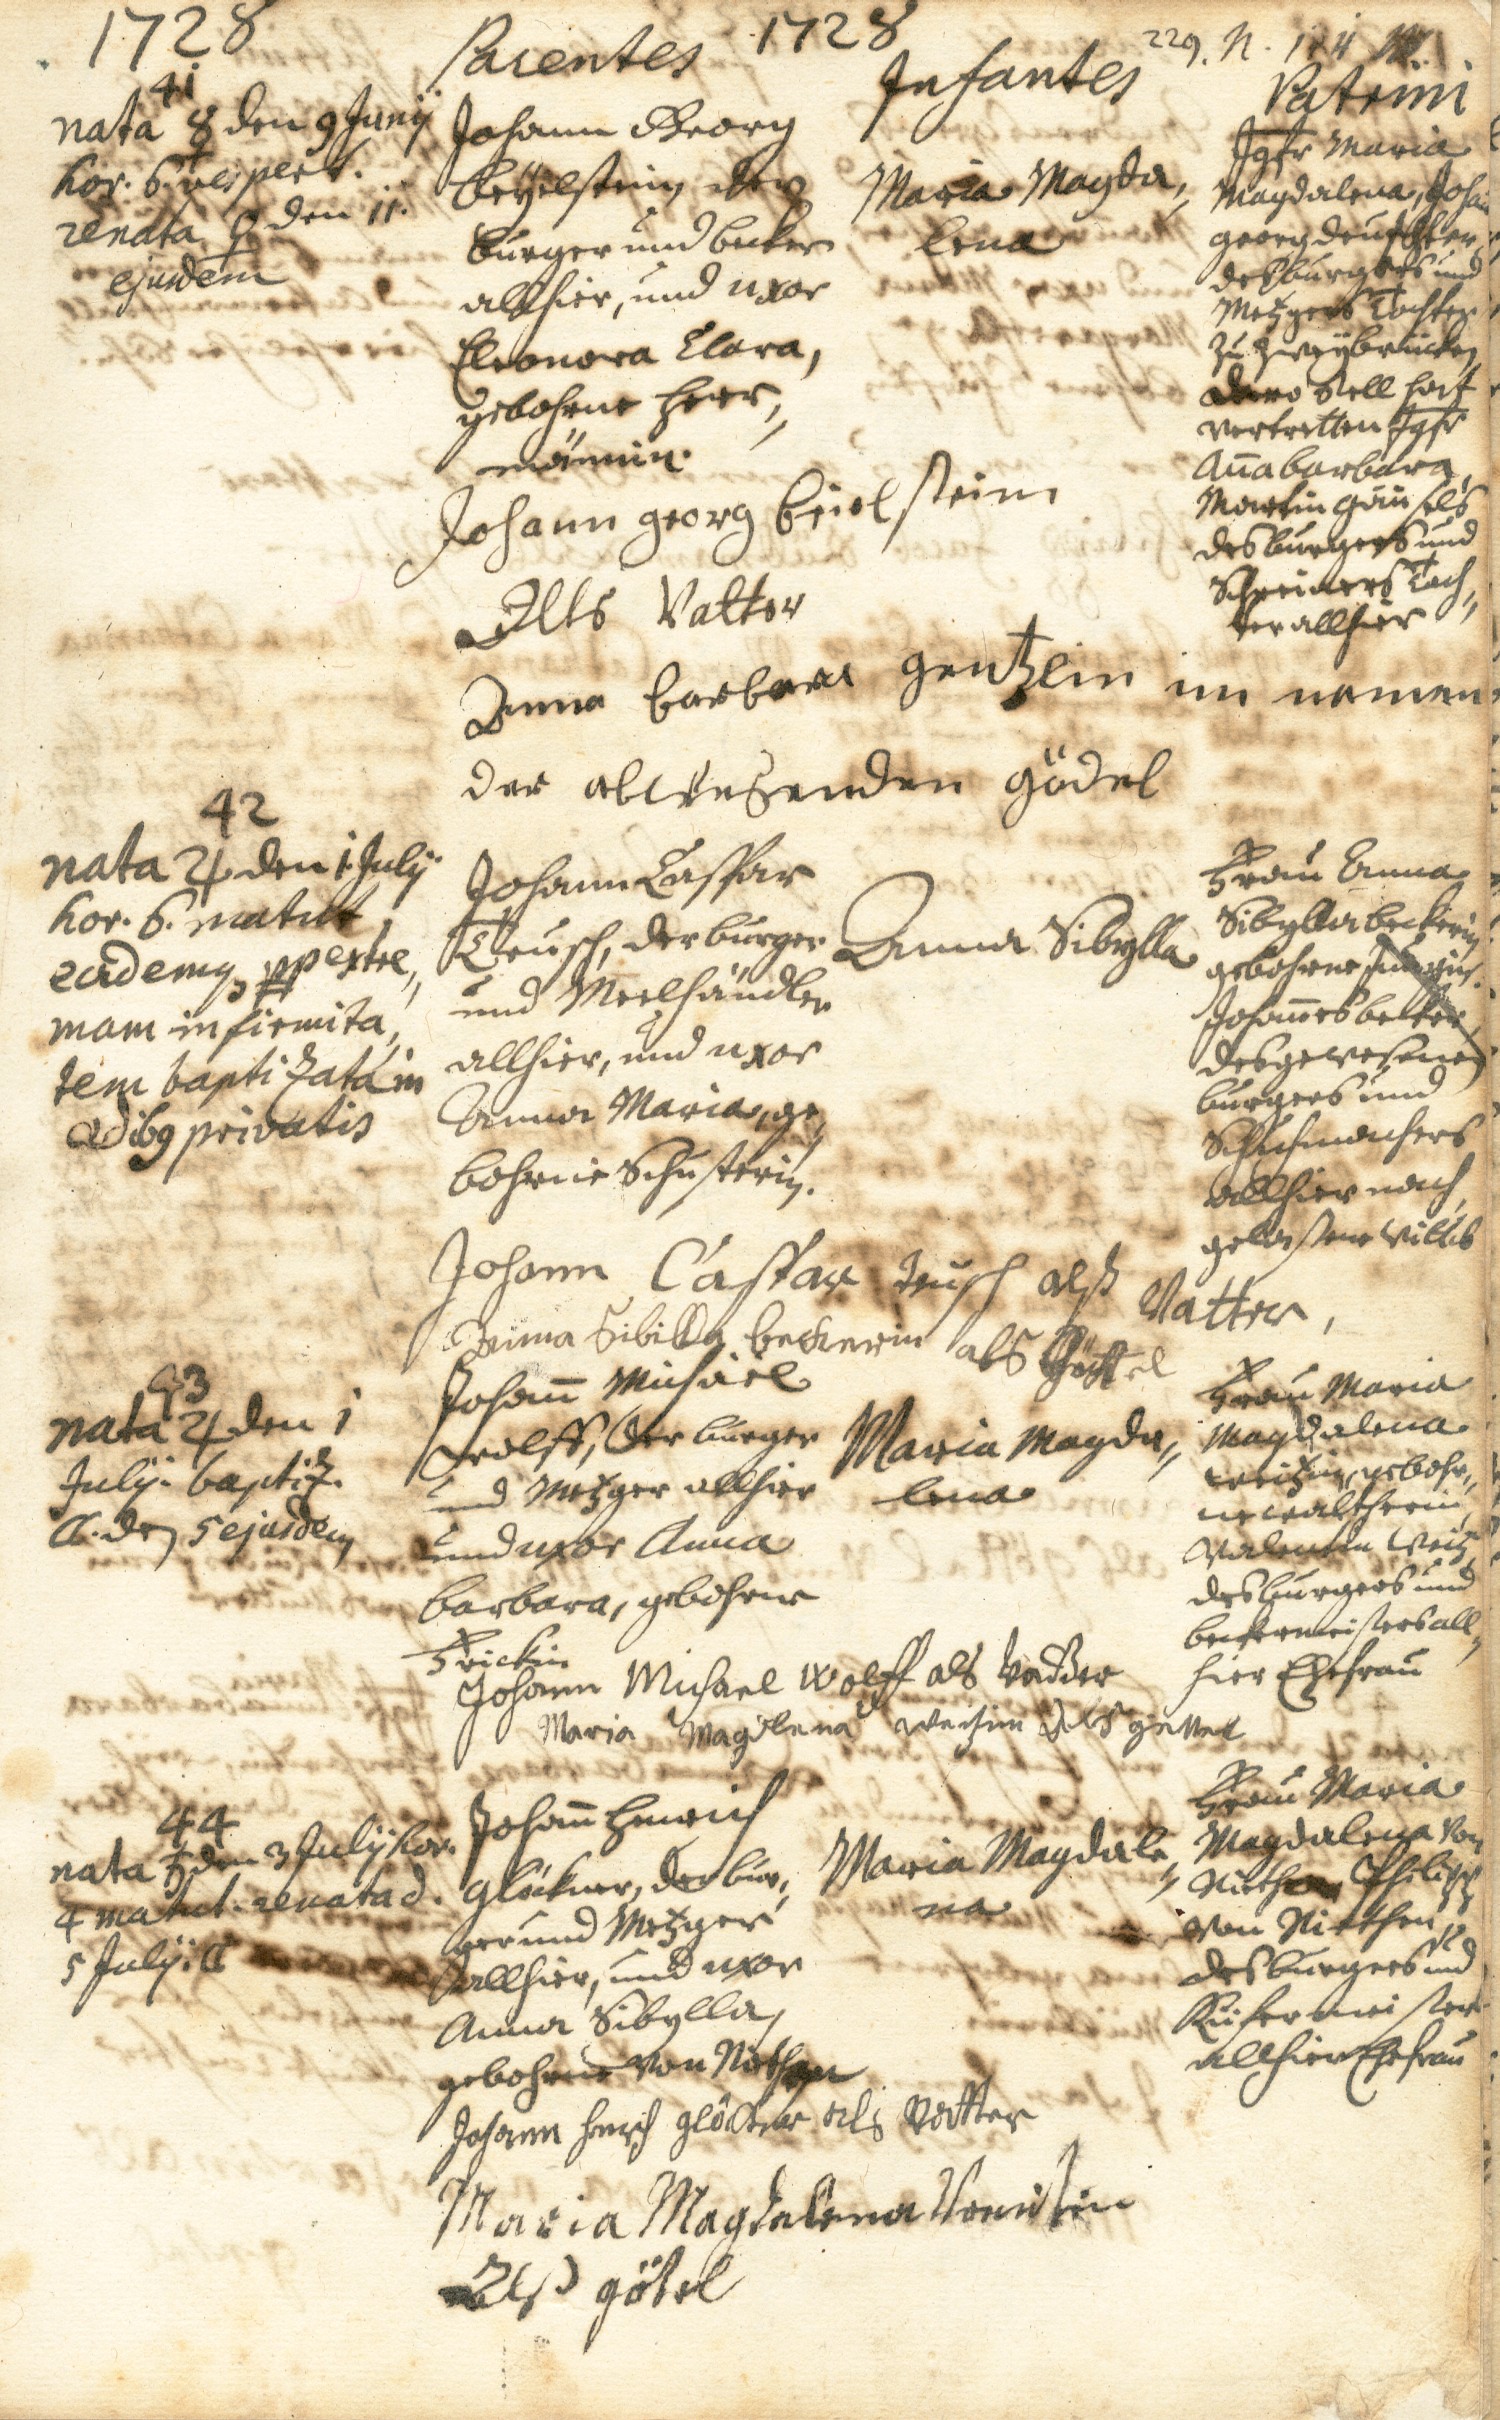 1728
Parentes 1728
Infantes
Patrini
41
nata ☿ den 9 Junÿ
hor. 6. vespert.
renata ♀ den 11.
ejusdem
Johann Georg
Beÿelstein, der
burger und becker
allhier, und uxor
Eleonora Clara,
gebohrne Herr„
männin.
Maria Magda„
lena
Jgfr Maria
Magdalena, Johan
georg
des burgers und
Metzgers Tochter
zu Zweÿbrücken,
dero stell hat
vertretten Jgfr
Anna barbara,
Martin
des burgers und
Schreiners Toch„
ter allhier
Johann georg beielstein
Alls Vatter
Anna barbara gentzlin im namen
der abwesenden gödel
42
nata ♃ den 1. Julÿ
hor. 6. matut
eadem, pp extre„
mam infirmita„
tem baptizata in
ædibg privatis
Johann Casspar
Teusch, der burger
und Meelhändler
allhier, und uxor
Anna Maria, ge„
bohrne Schusterin.
Anna Sibÿlla
Frau Anna
Sibÿlla beckerin
gebohrne
Johannes becker,
des gewesenen
burgers und
Schuhmachers
allhier nach„
gelassene Wittib
Johann Casspar teusch alß Vatter,
Anna Sibilla beckerin als
43
nata ♃ den 1
Julÿ. baptiz.
☾. den 5 ejusdem
Johann Michael
Wolff, der burger
und Metzger allhier
und uxor Anna
barbara, gebohrne
Frickin
Maria Magda„
lena
Frau Maria
Magdalena
Weitzin, gebohr„
ne Waltherin,
Valentin Weitz,
des burgers und
beckermeisters all„
hier Ehefrau
Johann Michael Wolff als vadder
Maria Magdlena Weitzin als gettel
44
nata ♄ den 3 Julÿ hor.
4 matut. renata d.
5 Julÿ. ☾
Johann Henrich
Glöckner, der bur„
ger und Metzger
allhier, und uxor
Anna Sibÿlla,
gebohrne von Niethen
Maria Magdale„
na
Frau Maria
Magdalena von
Niethen Philipp
von Niethen,
des burgers und
Kiefermeister
allhier Ehefrau
Johann Glöckner als Vatter
Maria Magdalena
Alß götel